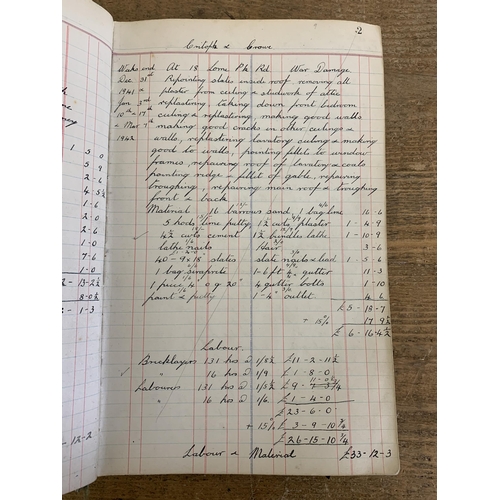 2
Entofp & Crowe
Weeks end At 18 Lome Pk Rd. War Damage
Dec 31st Repointing slates inside roof removing all
1941 & plaster from ceiling & studwork of attic
Jan 3rd replastering, taking down front bedroom
10th - 17 ceiling & replastering, making good walls
& Mar 7th making good cracks in other ceilings &
1942 walls, replastering lavatory ceiling & making
good to walls, pointing fillet to window
frames, repairing roof of lavatory & coals
pointing ridge & fillet of gable, repairing
troughing, repairing main roof & troughing
front & back
Material 16 barrows sand, bag lime 16-6
5 hods lime putty, 1½ cwts plaster 1-4-9
4½ cwts cement 1½ bundles lathe 1-10-9
lathe nails Hair 3-6
40-9x18" slates slate nails & lead 1-5-6
1 bag sirapite 1-6ft 4" gutter 11-3
1 piece 4" o g 20" 4 gutter bolts 1-10
paint & putty 1-4" outlet 4-6
£5-18-7
+ 15% 17 9½
£ 6-16-4½
Labour.
Bricklayers 131 hrs @ 1/8½ £11-2-11½
" 16 hrs @ 1/9 £1-8-0
Labourers 131 hrs @ 1/5¼ £9-
" 16 hrs @ 1/6. £1-4-0
£23-6-0
+ 15% £3-9-10¾
£26-15-10¾
Labour & Material £33-12-3
1 5 0
5 9
2-6
4 5½
1-6
2 0
2-0
1-0
7-6
1-0
13-2½
8-0½
1-3
12-2